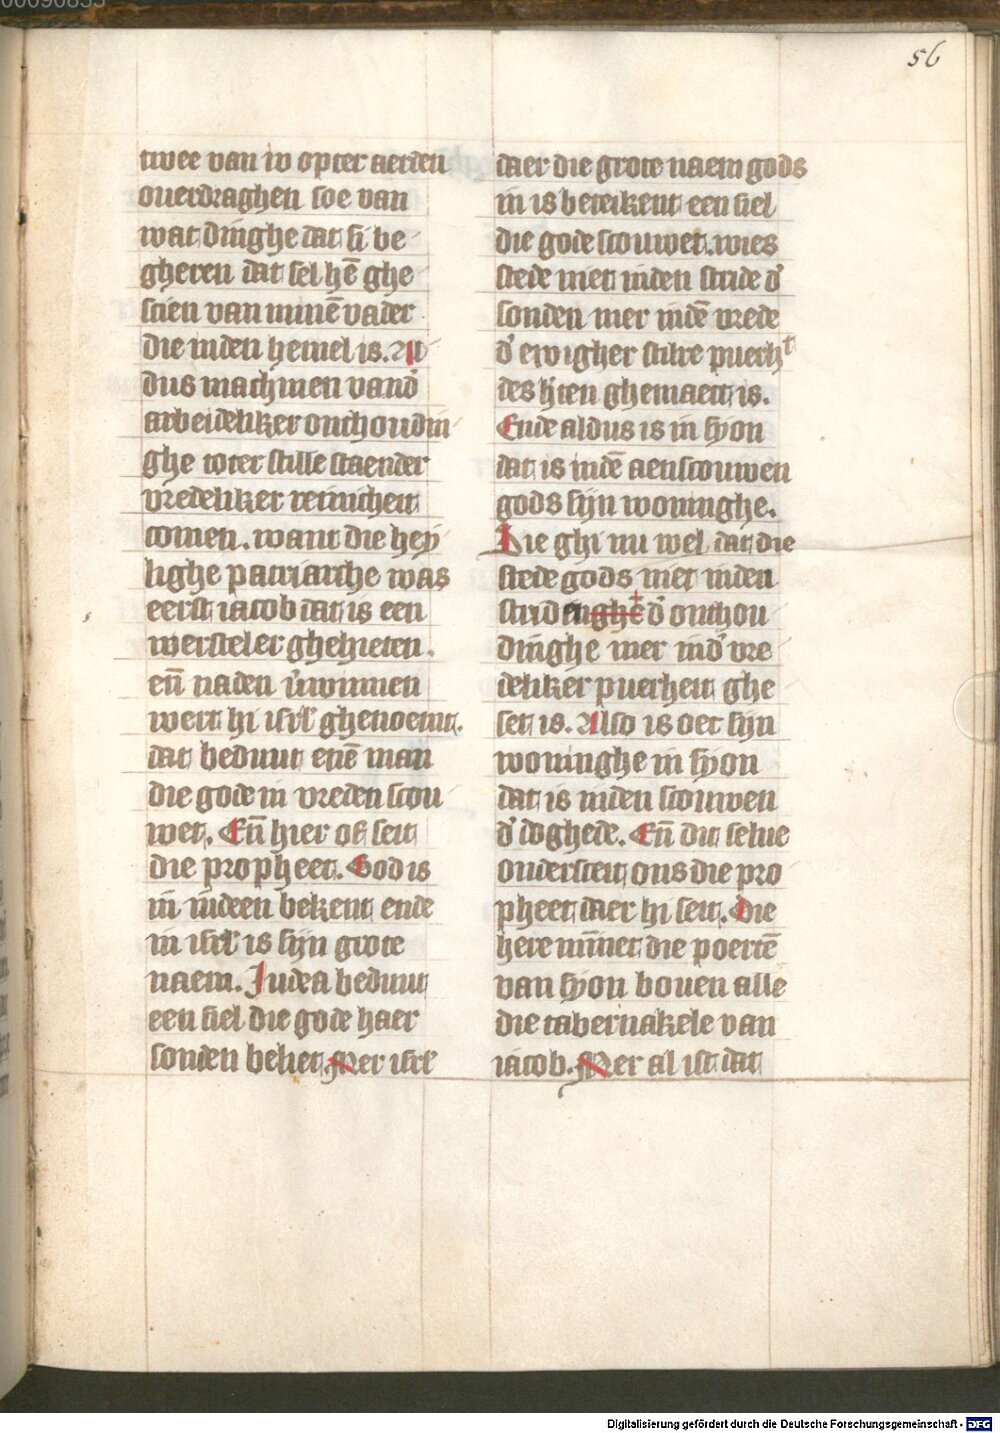 00090833
56
twee van iv opter aerden
ouerdraghen soe van
wat dinghe dat si be
gheren dat sel hē ghe
scien van minē vader
die inden hemel is. Al
dus machmen vand'
arbeideliker onthoudin
ghe toter stille staender
vredeliker reinicheit
comen. want die hey
lighe patriarche was
eerst iacob dat is een
worsteler ghehieten.
eñ naden v'winnen
wert hi isrl' ghenoemt.
dat beduut enē man
die gode in vreden scou
wet. Eñ hier of seit
die propheet. God is
in iudeen bekent ende
in isrl' is sijn grote
naem. Iudea beduut
een siel die gode haer
sonden beliet. Mer isrl'
daer die grote naem gods
in is beteikent een siel
die gode scouwet. wies
stede niet inden stride d'
sonden mer indē vrede
d' ewigher stilre puerh t
des h'ten ghemaect is.
Ende aldus is in syon
dat is indē aenscouwen
gods sijn woninghe.
Sie ghi nu wel dat die
stede gods niet inden
striden ghē d' onthou
dinghe mer ind' vre
deliker puerheit ghe
set is. Also is oec sijn
woninghe in syon
dat is inden scouwen
d' doghede. Eñ dit selue
ondersceit ons die pro
pheet daer hi seit. Die
here mīnet die poertē
van syon bouen alle
die tabernakele van
iacob. Mer al ist dat
Digitalisierung gefördert durch die Deutsche Forschungsgemeinschaft - DFG